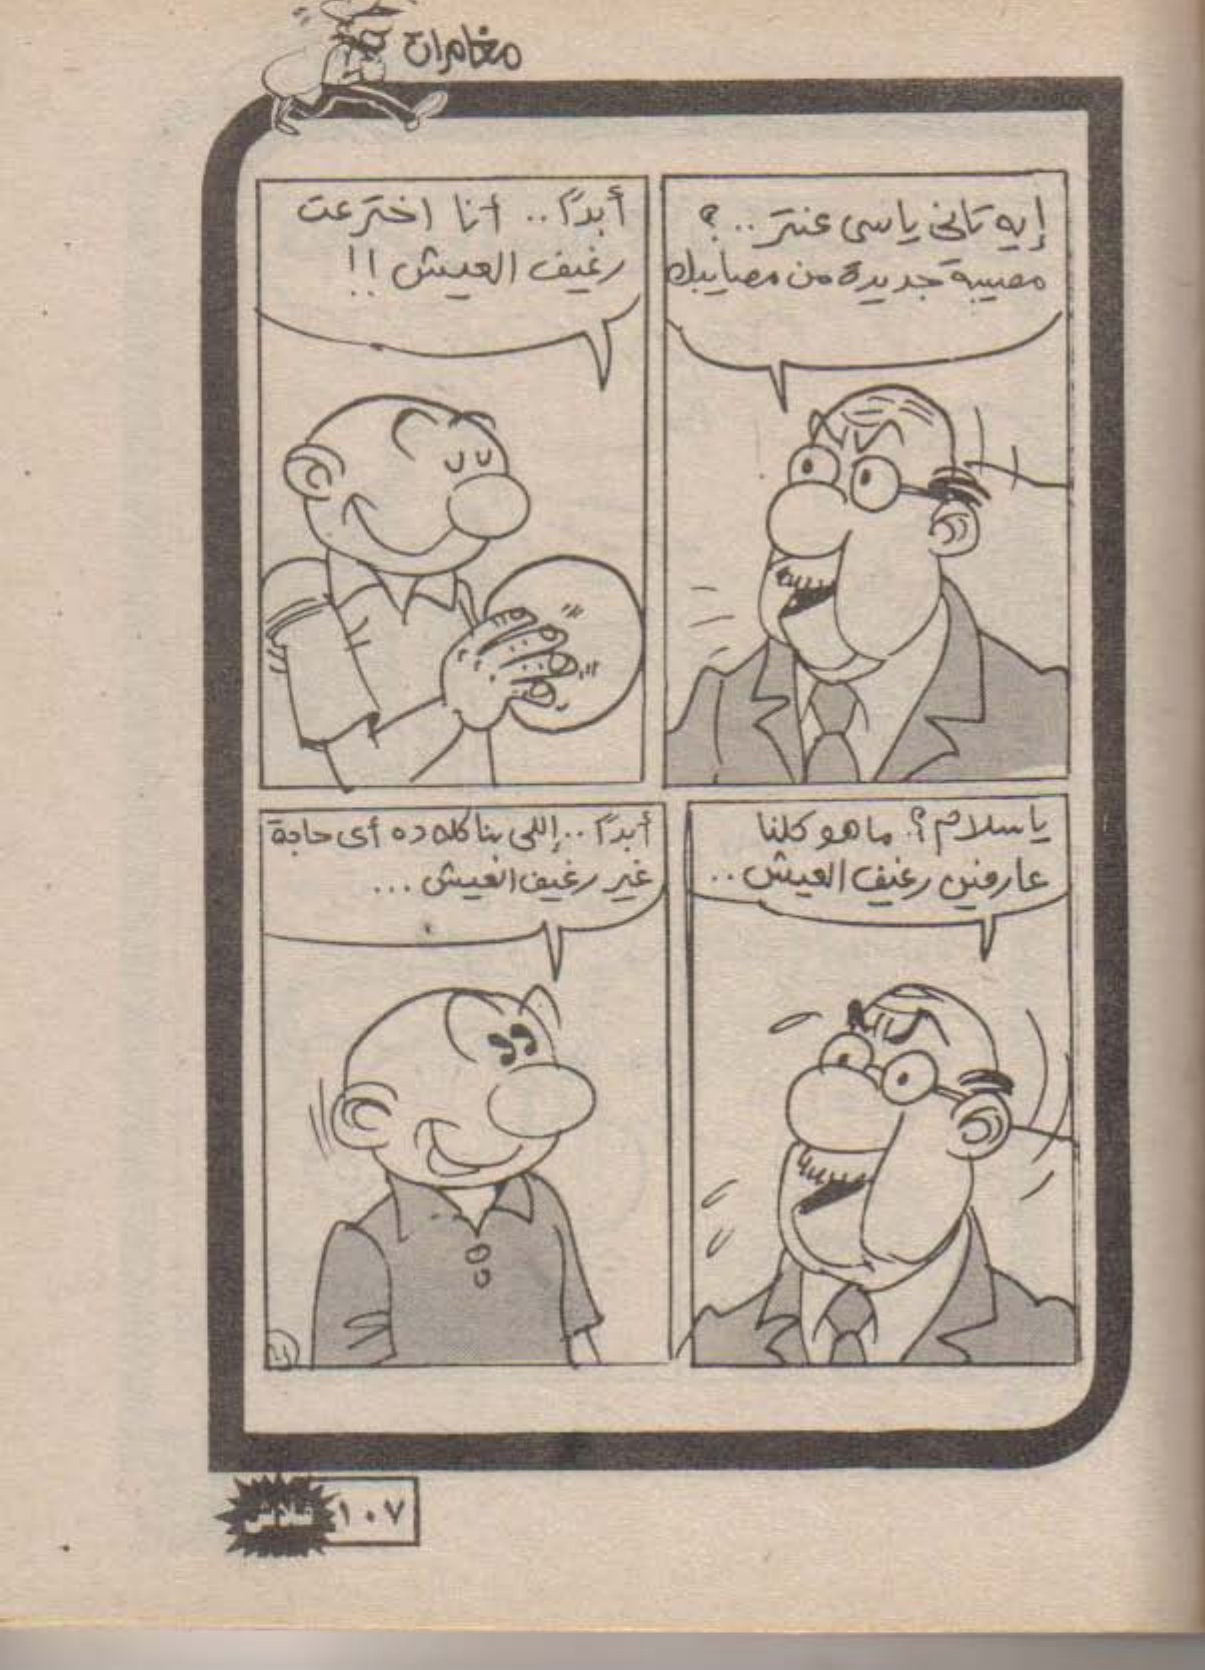 مغامرات
إيه تاني ياسى عنتر..؟
مصيبة جديدة من مصايبك
أبدًا.. أنا اخترعت
رغيف العيش !!
ياسلام؟. ما هو كلنا
عارفين رغيف العيش..
أبدًا..إللى بناكله ده أى حاجة
غير رغيف العيش...
فلاش
١٠٧